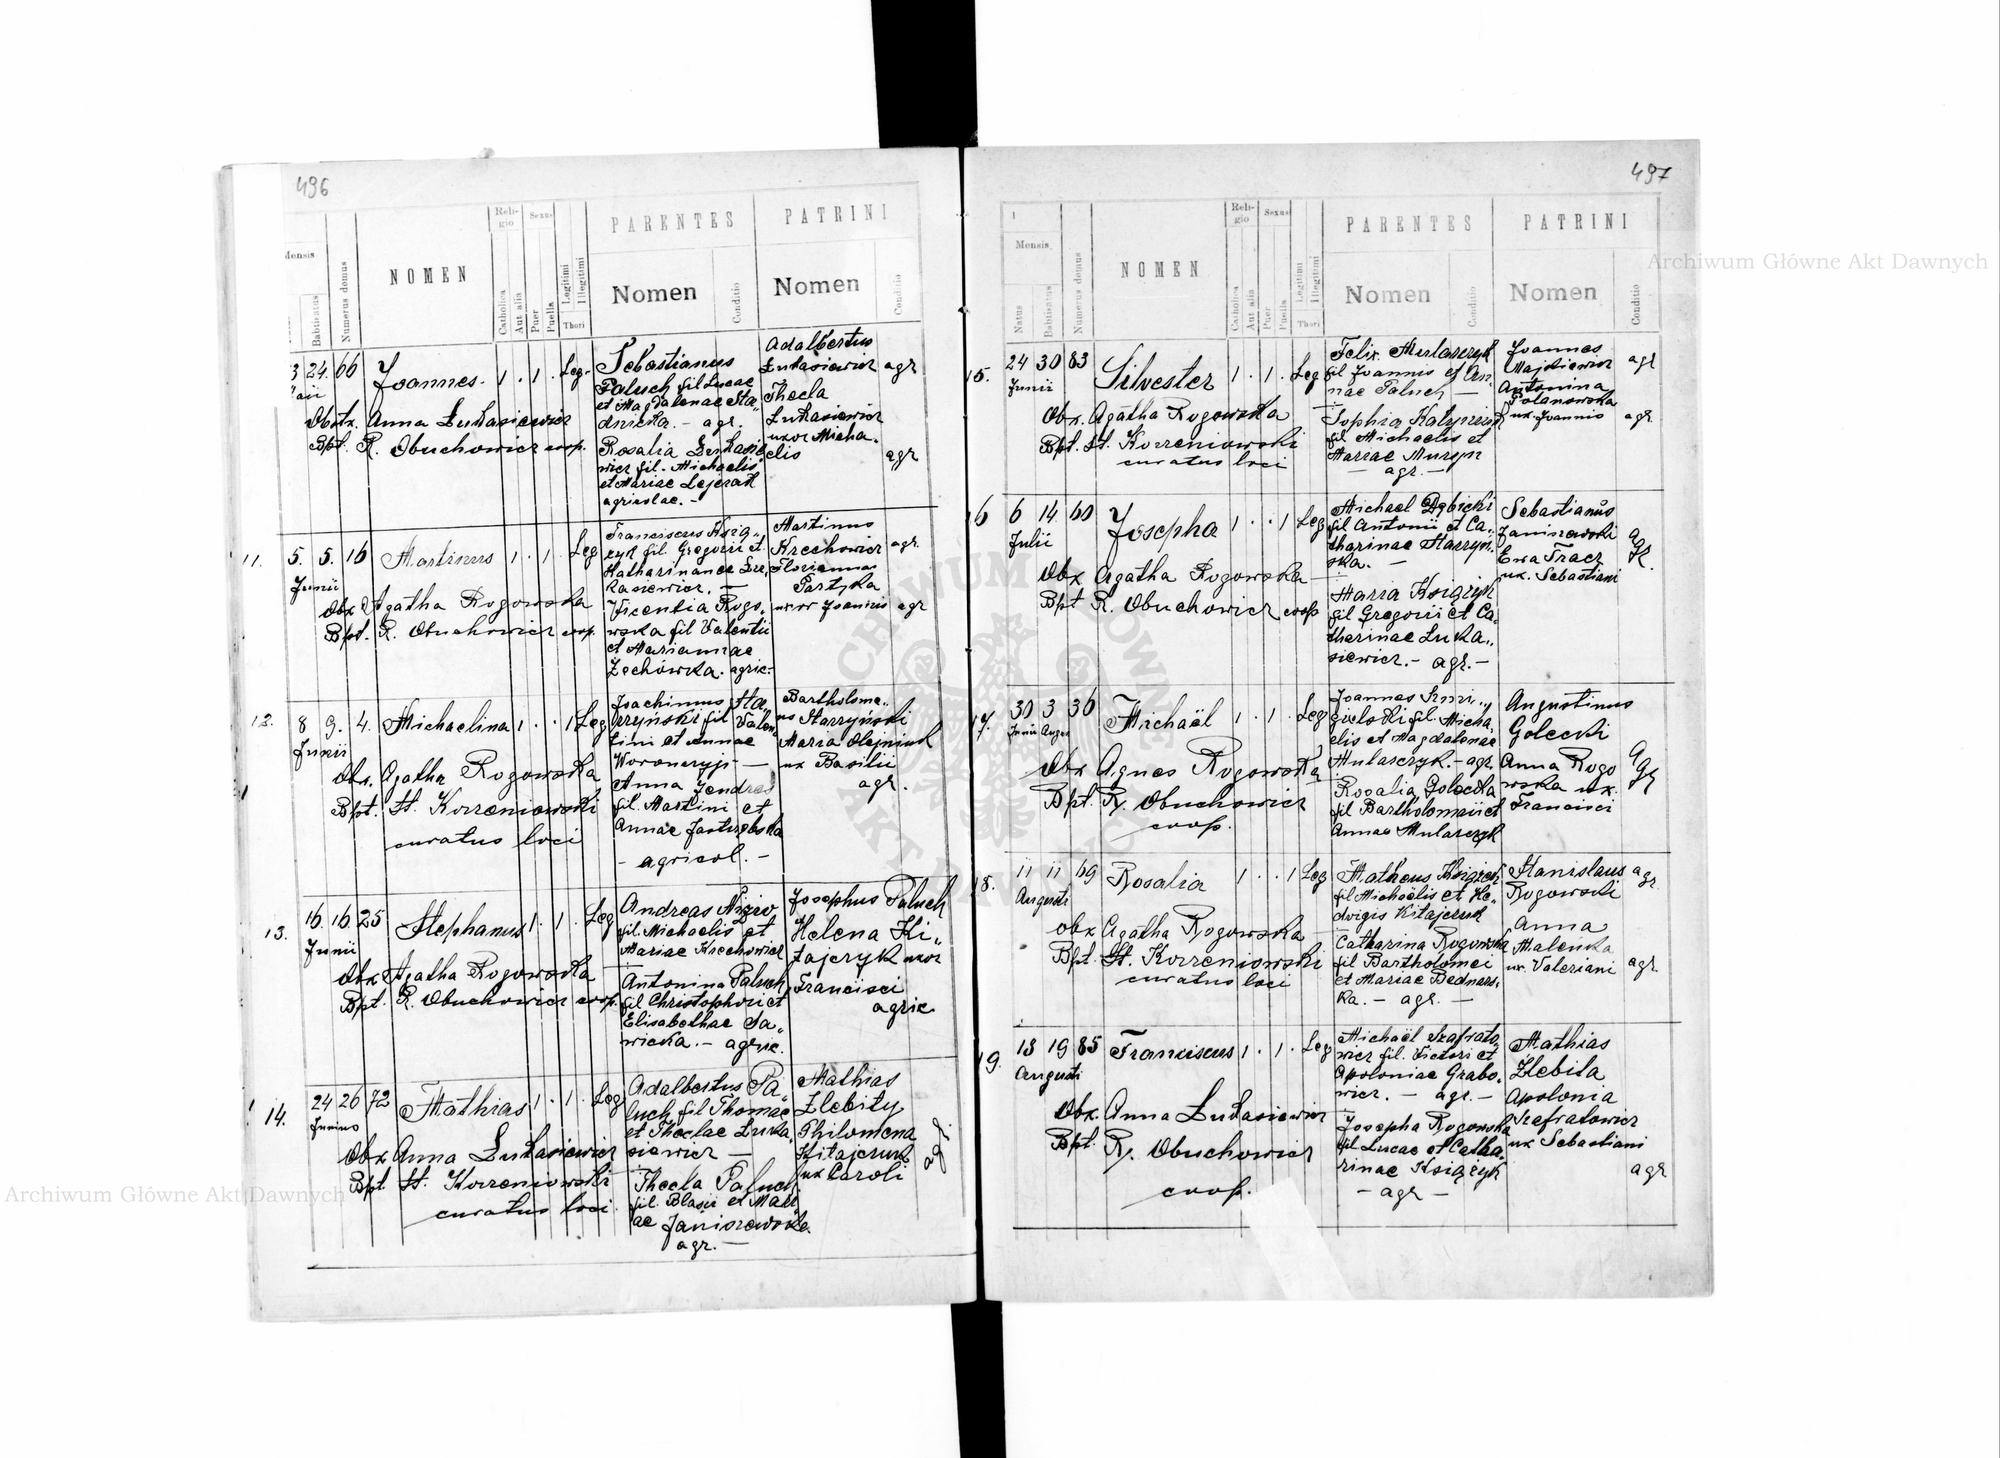 496
Mensis
Babtisatus
Numerus domus
NOMEN
Reli-
gio
Sexus
Catholica
Aut alia
Puer
Puella
Legitimi
Illegitimi
Thori
PARENTES
Nomen
Conditio
PATRINI
Nomen
Conditio
3 24. 66 Joannes. 1 . 1 . Leg.
Obstx. Anna Łukasiewicz
Bpt. R. Obuchowicz coop.
Sebastianus
Paluch fil Lucae
et Magdalenae Sta„
dnicka. - agr.
Rosalia Łukasie
wicz fil. Michaelis
et Mariae Lejerak
agricolae. -
Adalbertus
Łukasiewicz agr
Thecla
Łukasiewicz
uxor Micha.
elis agr
11. 5. 5. 16 Martinus 1 . 1 . Leg
Junii
Obx Agatha Rogowska
Bpt. R. Obuchowicz coop.
Franciscus Ksią„
żyk fil. Gregorii et
Katharinae Łu„
kasiewicz. —
Vicentia Rogo„
wska fil Valentii
et Mariannae
Żechówka. agric-
Martinus
Krechowicz agr.
Florianna
Partyka
uxor Joannis agr
12. 8 9. 4. Michaelina 1 . . 1 Leg
Junii
Obx. Agatha Rogowska
Bpt. St. Korzeniowski
curatus loci
Joachimus Sta„
rzyński fil Valen„
tini et Annae
Woronczyj- —
Anna Jendras
fil. Martini et
Annae Jastrzębska
- agricol. -
Bartholome„
us Starzyński
Maria Olejniuk
ux Basilii
agr.
13. 16 16 25 Stephanus 1 . 1 . Leg
Junii
Obx Agatha Rogowska
Bpt. R. Obuchowicz coop.
Andreas Nizio
fil. Michaelis et
Mariae Krechowicz
Antonina Paluch
fil Christophori et
Elisabethae Sa„
wicka. - agric.
Josephus Paluch
Helena Ki„
tajczyk uxor
Francisci
agric
14. 24 26 72 Mathias 1 . 1 . Leg
Junius
Obx Anna Łukasiewicz
Bpt. St. Korzeniowski
curatus loci.
Adalbertus Pa„
luch fil Thomae
et Theclae Łuka„
siewicz —
Thecla Paluch
fil. Blasii et Mari
ae Janiszewska.
agr. -
Mathias
Zlebity
Philomena
Kitajczuk
ux Caroli
agr
497
Mensis
Natus
Babtisatus
Numerus domus
NOMEN
Reli-
gio
Sexus
Catholica
Aut alia
Puer
Puella
Legitimi
Illegitimi
Thori
PARENTES
Nomen
Conditio
PATRINI
Nomen
Conditio
15. 24 30 83 Silvester 1 . 1 . Leg
Junii
Obx. Agatha Rogowska
Bpt. St. Korzeniowski
curatus loci
Felix Mularczyk
fil Joannis et An„
nae Paluch —
Sophia
fil Michaelis et
Mariae Muryn
- agr. -
Joannes
Majdiewicz agr
Antonina
Polanowska
ux. Joannis agr.
16 6 14 60 Josepha 1 . . 1 Leg
Julii
Obx Agatha Rogowska
Bpt R. Obuchowicz coop
Michael Dębicki
fil Antonii et Ca„
tharinae Starzyń„
ska. -
Maria Książyk
fil Gregorii et Ca„
tharinae Łuka„
siewicz. - agr. -
Sebastianus
Janiszewski
Ewa Tracz
ux. Sebastiani
agr.
17. 30 3 36 Michaël 1 . 1 . Leg
Obx Agnes Rogowska
Bpt. R. Obuchowicz
coop.
Joannes
fil. Micha
elis et Magdalenae
Mularczyk. - agr.
Rosalia Golecka
fil Bartholomaii et
Annae Mularczyk
Augustinus
Golecki
Anna Rogo
wska ux.
Francisci
agr
18. 11 11 69 Rosalia 1 . . 1 Leg
Augusti
Obx Agatha Rogowska
Bpt. St. Korzeniowski
curatus loci
Matheus
fil Michaëlis et He„
dvigis Kitajczuk
Catharina Rogowska
fil Bartholomei
et Mariae Bednars„
ka. - agr. —
Stanislaus agr
Rogowski
Anna
Malenka
ux. Valeriani agr
19. 18 19 85 Franciscus 1 . 1 . Leg
Augusti
Obx. Anna Łukasiewicz
Bpt. R. Obuchowicz
coop.
Michaël Szafrato
wicz fil. Victori et
Apoloniae Grabo„
wicz. - agr. -
Josepha Rogowska
fil Lucae et Catha„
rinae Książyk
- agr -
Mathias
Zlebita
Apolonia
Szafratowicz
ux Sebastiani
agr
Archiwum Główne Akt Dawnych
Archiwum Główne Akt Dawnych
ARCHIWUM GŁÓWNE AKT DAWNYCH